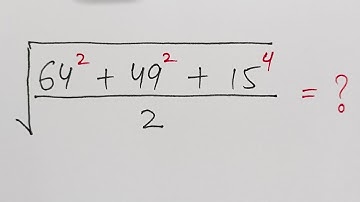 √((64² + 49² + 15⁴)/2) = ?